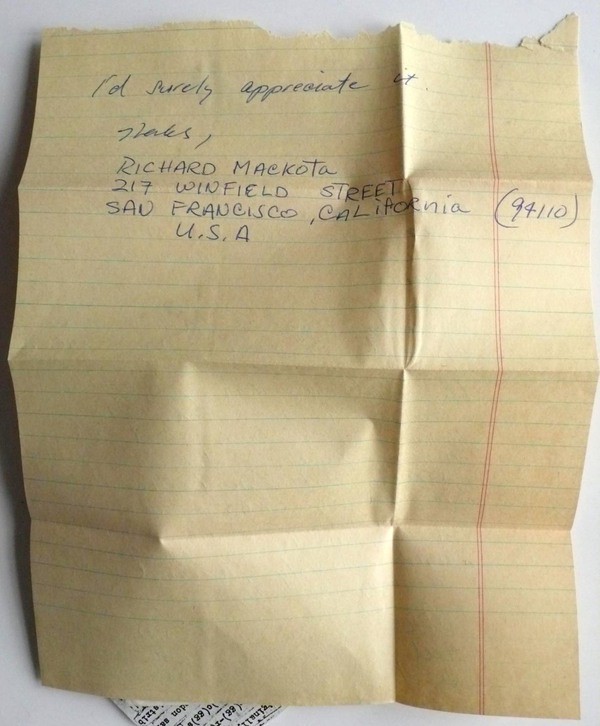 I'd surely appreciate it.
Thanks,
RICHARD MACKOTA
217 WINFIELD STREET
SAN FRANCISCO, CALIFORNIA (94110)
U.S.A